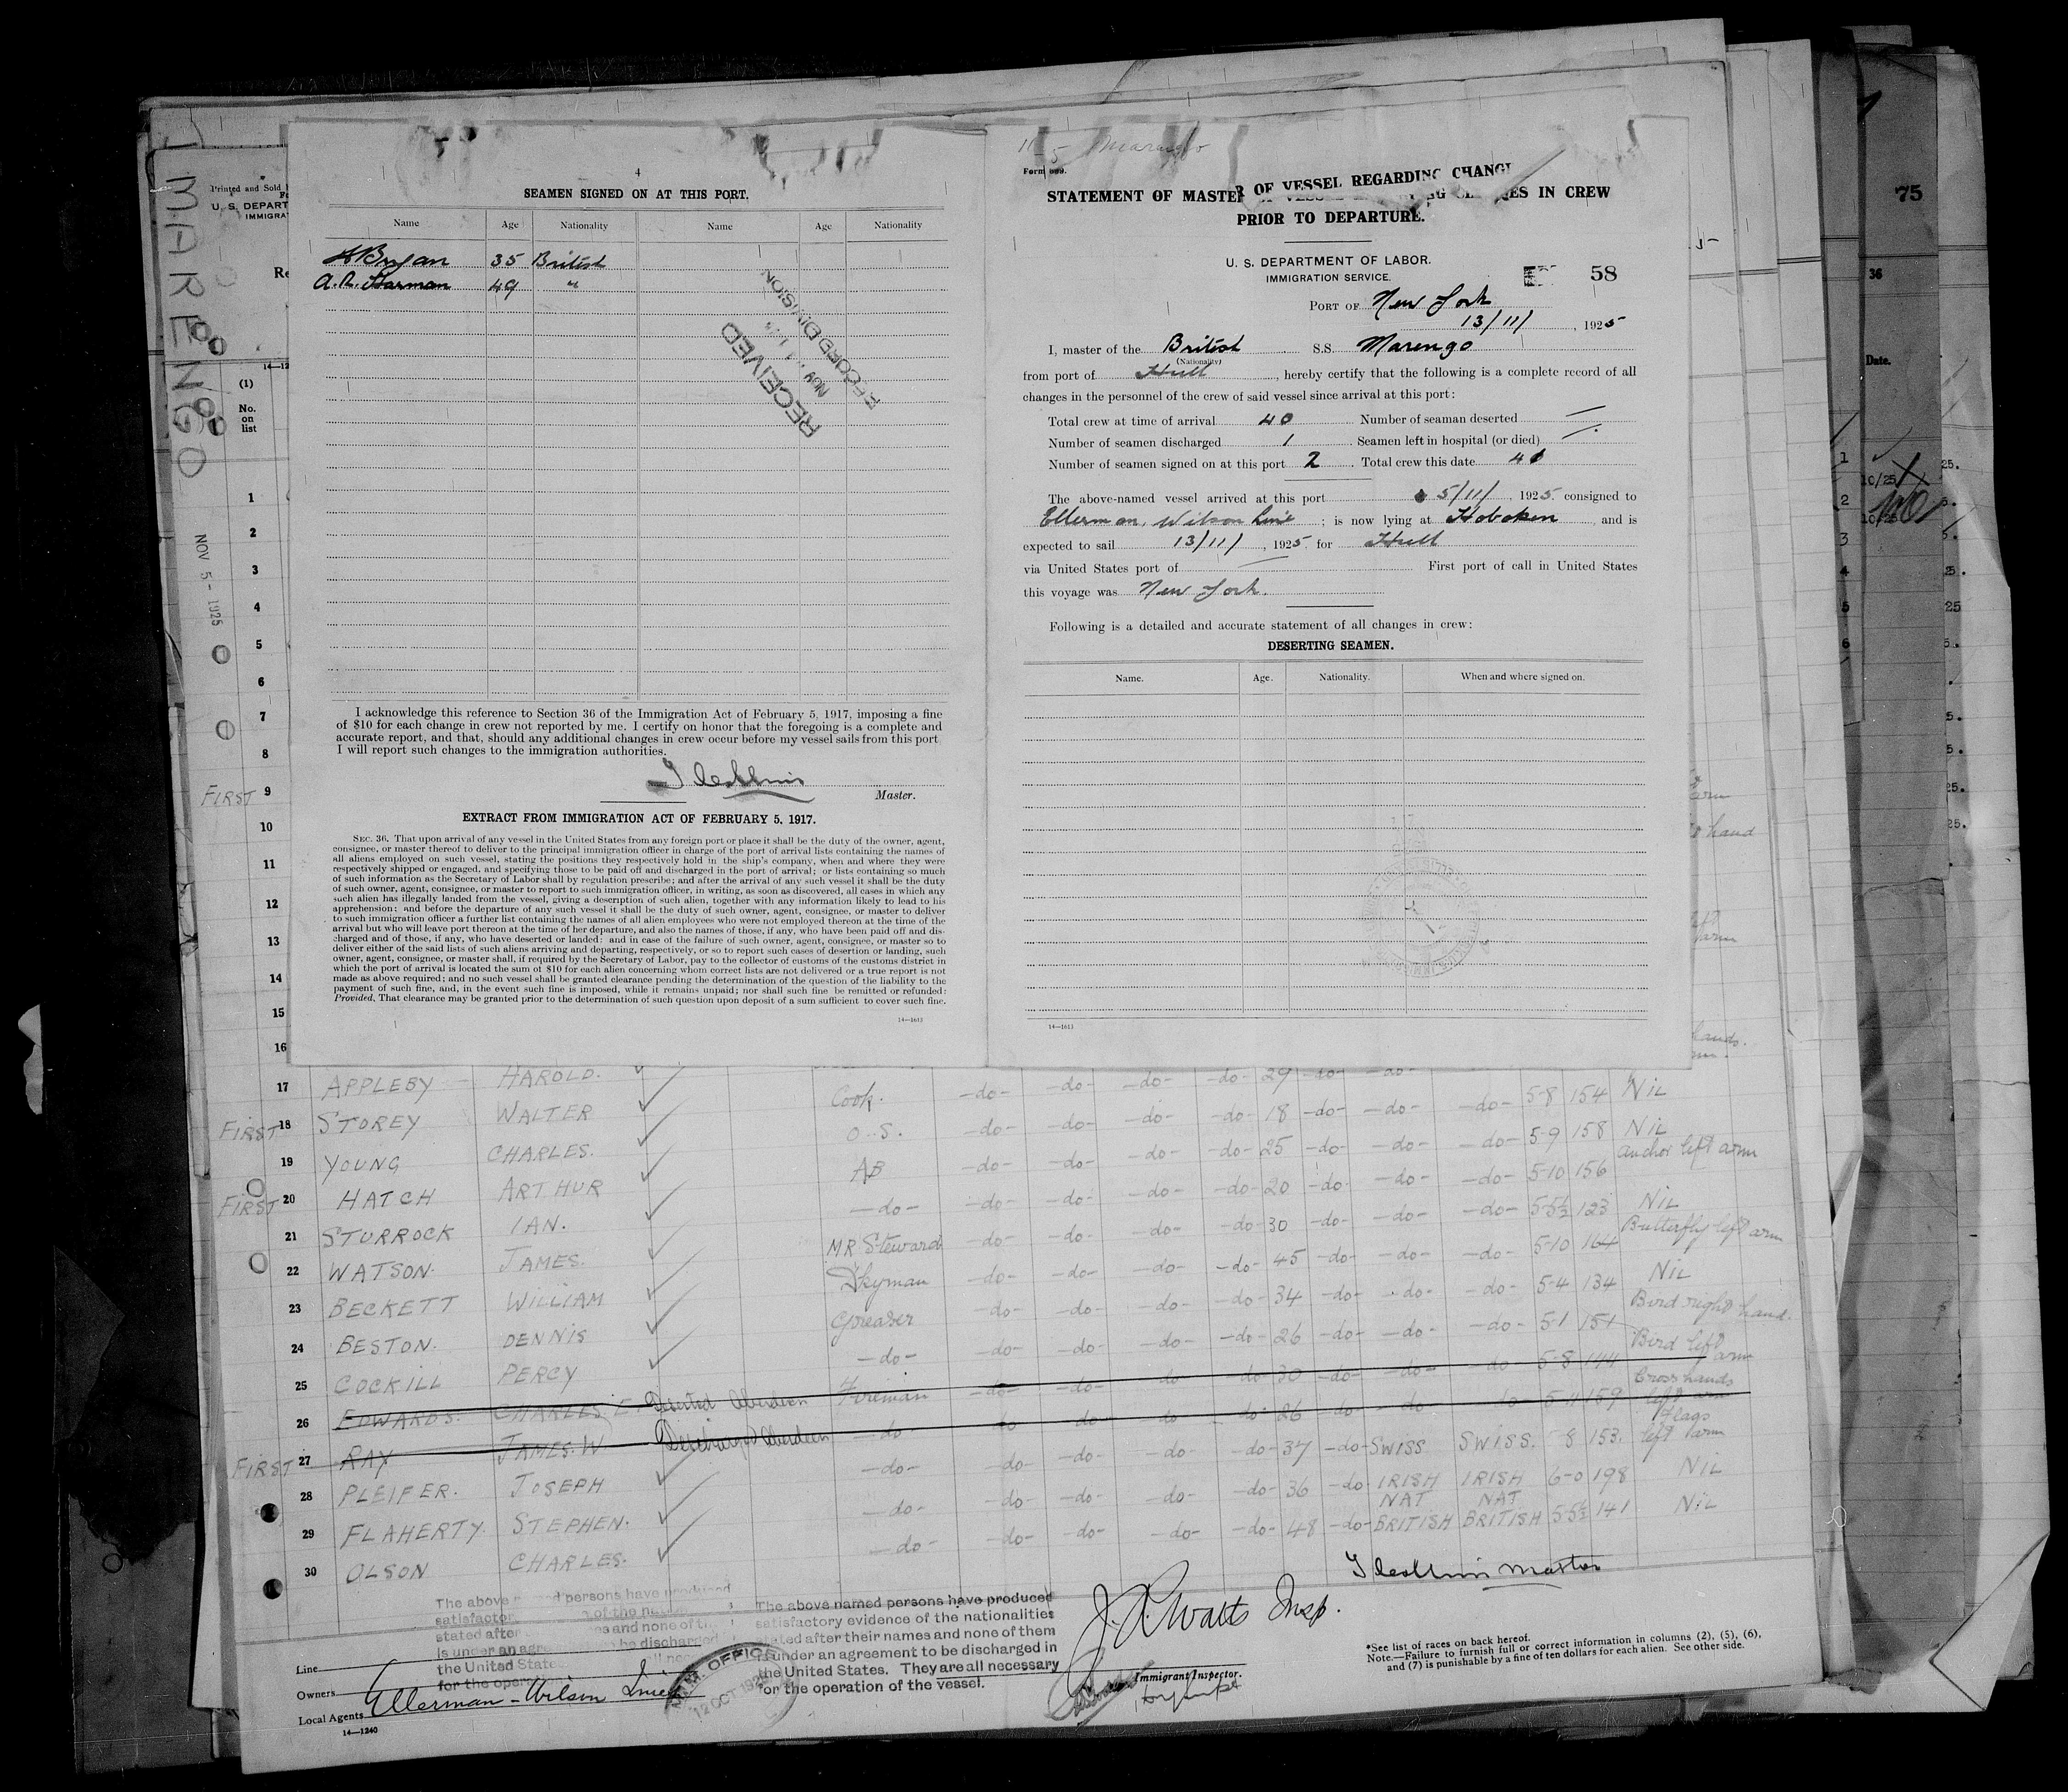 MARENGO
NOV 5- 1925
Printed and Sold
U. S. DEPART
IMMIGRA
(1)
No.
on
list
4
SEAMEN SIGNED ON AT THIS PORT.
Name Age Nationality Name Age Nationality
A Bryan 35 British
A. R. Harman 49 "
RECEIVED
NOV
RECORD DIVISION
I acknowledge this reference to Section 36 of the Immigration Act of February 5, 1917, imposing a fine
of $10 for each change in crew not reported by me. I certify on honor that the foregoing is a complete and
accurate report, and that, should any additional changes in crew occur before my vessel sails from this port
I will report such changes to the immigration authorities.
Master.
EXTRACT FROM IMMIGRATION ACT OF FEBRUARY 5, 1917.
SEC. 36. That upon arrival of any vessel in the United States from any foreign port or place it shall be the duty of the owner, agent,
consignee, or master thereof to deliver to the principal immigration officer in charge of the port of arrival lists containing the names of
all aliens employed on such vessel, stating the positions they respectively hold in the ship's company, when and where they were
respectively shipped or engaged, and specifying those to be paid off and discharged in the port of arrival; or lists containing so much
of such information as the Secretary of Labor shall by regulation prescribe; and after the arrival of any such vessel it shall be the duty
of such owner, agent, consignee, or master to report to such immigration officer, in writing, as soon as discovered, all cases in which any
such alien has illegally landed from the vessel, giving a description of such alien, together with any information likely to lead to his
apprehension; and before the departure of any such vessel it shall be the duty of such owner, agent, consignee, or master to deliver
to such immigration officer a further list containing the names of all alien employees who were not employed thereon at the time of the
arrival but who will leave port thereon at the time of her departure, and also the names of those, if any, who have been paid off and dis-
charged and of those, if any, who have deserted or landed: and in case of the failure of such owner, agent, consignee, or master so to
deliver either of the said lists of such aliens arriving and departing, respectively, or so to report such cases of desertion or landing, such
owner, agent, consignee, or master shall, if required by the Secretary of Labor, pay to the collector of customs of the customs district in
which the port of arrival is located the sum of $10 for each alien concerning whom correct lists are not delivered or a true report is not
made as above required; and no such vessel shall be granted clearance pending the determination of the question of the liability to the
payment of such fine, and, in the event such fine is imposed, while it remains unpaid; nor shall such fine be remitted or refunded:
Provided, That clearance may be granted prior to the determination of such question upon deposit of a sum sufficient to cover such fine.
14—1613
11-5 Marengo
Form 689.
STATEMENT OF MASTER OF VESSEL REGARDING CHANGES IN CREW
PRIOR TO DEPARTURE.
U. S. DEPARTMENT OF LABOR.
IMMIGRATION SERVICE.
58
PORT OF New York
13/11/, 1925
I, master of the British S.S. Marengo
(Nationality)
from port of Hull, hereby certify that the following is a complete record of all
changes in the personnel of the crew of said vessel since arrival at this port:
Total crew at time of arrival 40 Number of seaman deserted —
Number of seamen discharged 1 Seamen left in hospital (or died) —
Number of seamen signed on at this port 2 Total crew this date 41
The above-named vessel arrived at this port 5/11/, 1925. consigned to
Ellerman, Wilson Line; is now lying at Hoboken and is
expected to sail 13/11/, 1925. for Hull
via United States port of — First port of call in United States
this voyage was New York.
Following is a detailed and accurate statement of all changes in crew:
DESERTING SEAMEN.
Name. Age. Nationality. When and where signed on.
14—1613
75
36
Date.
1
2
3
4
5
6
7
8
FIRST 9
10
11
12
13
14
15
16
17 APPLEBY HAROLD. Cook. -do- -do- -do- -do- 29 -do- -do-
FIRST 18 STOREY WALTER O.S. -do- -do- -do- -do- 18 -do- -do- -do- 5-8 154 NIL
19 YOUNG CHARLES. AB -do- -do- -do- -do- 25 -do- -do- -do- 5-9 158 NIL
FIRST 20 HATCH ARTHUR -do- -do- -do- -do- -do- 20 -do- -do- -do- 5-10 156 anchor left arm
21 STURROCK IAN. MR Steward -do- -do- -do- -do- 30 -do- -do- -do- 5-5½ 123 NIL
22 WATSON. JAMES. Dkyman -do- -do- -do- -do- 45 -do- -do- -do- 5-10 164 Butterfly left arm
23 BECKETT WILLIAM Greaser -do- -do- -do- -do- 34 -do- -do- -do- 5-4 134 NIL
24 BESTON. DENNIS -do- -do- -do- -do- -do- 26 -do- -do- -do- 5-1 151 Bird right hand.
25 COCKILL PERCY Fireman -do- -do- -do- -do- 30 -do- -do- -do- 5-8 144 Bird left arm
26 EDWARDS. CHARLES. E. Deserted Aberdeen -do- -do- -do- -do- -do- 26 -do- -do- -do- 5-11 159 Cross hands left arm
FIRST 27 RAY JAMES. W Discharged Aberdeen -do- -do- -do- -do- -do- 37 -do- SWISS SWISS. 5-8 153. Flags left arm
28 PLEIFER. JOSEPH -do- -do- -do- -do- -do- 36 -do- IRISH IRISH 6-0 198 NIL
29 FLAHERTY. STEPHEN. -do- -do- -do- -do- -do- 48 -do- NAT BRITISH NAT BRITISH 5-5½ 141 NIL
30 OLSON CHARLES.
The above named persons have produced
satisfactory evidence of the nationalities
stated after their names and none of them
is under an agreement to be discharged in
the United States. They are all necessary
for the operation of the vessel.
Master
J. R. Watts Insp.
Immigrant Inspector.
Line
Owners
Local Agents Ellerman-Wilson Line
14—1240
IMM. OFFICE
12 OCT 1925
*See list of races on back hereof.
Note.—Failure to furnish full or correct information in columns (2), (5), (6),
and (7) is punishable by a fine of ten dollars for each alien. See other side.